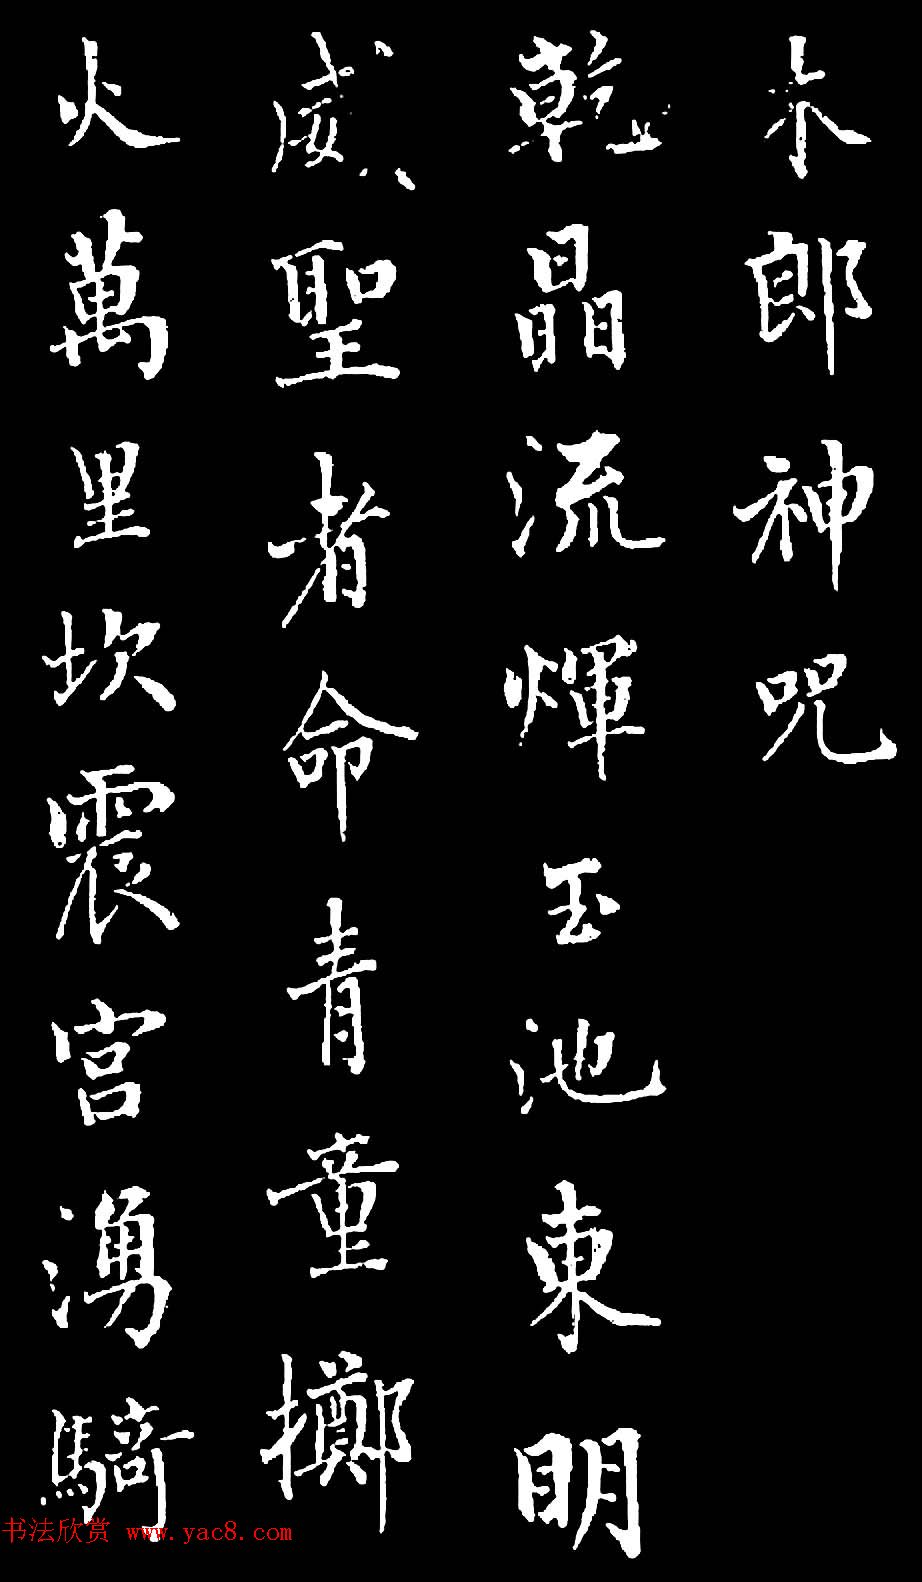 木郎神咒
乾晶流輝玉池東明
威聖者命青童擲
火萬里坎震宮湧騎
书法欣赏 www.yac8.com